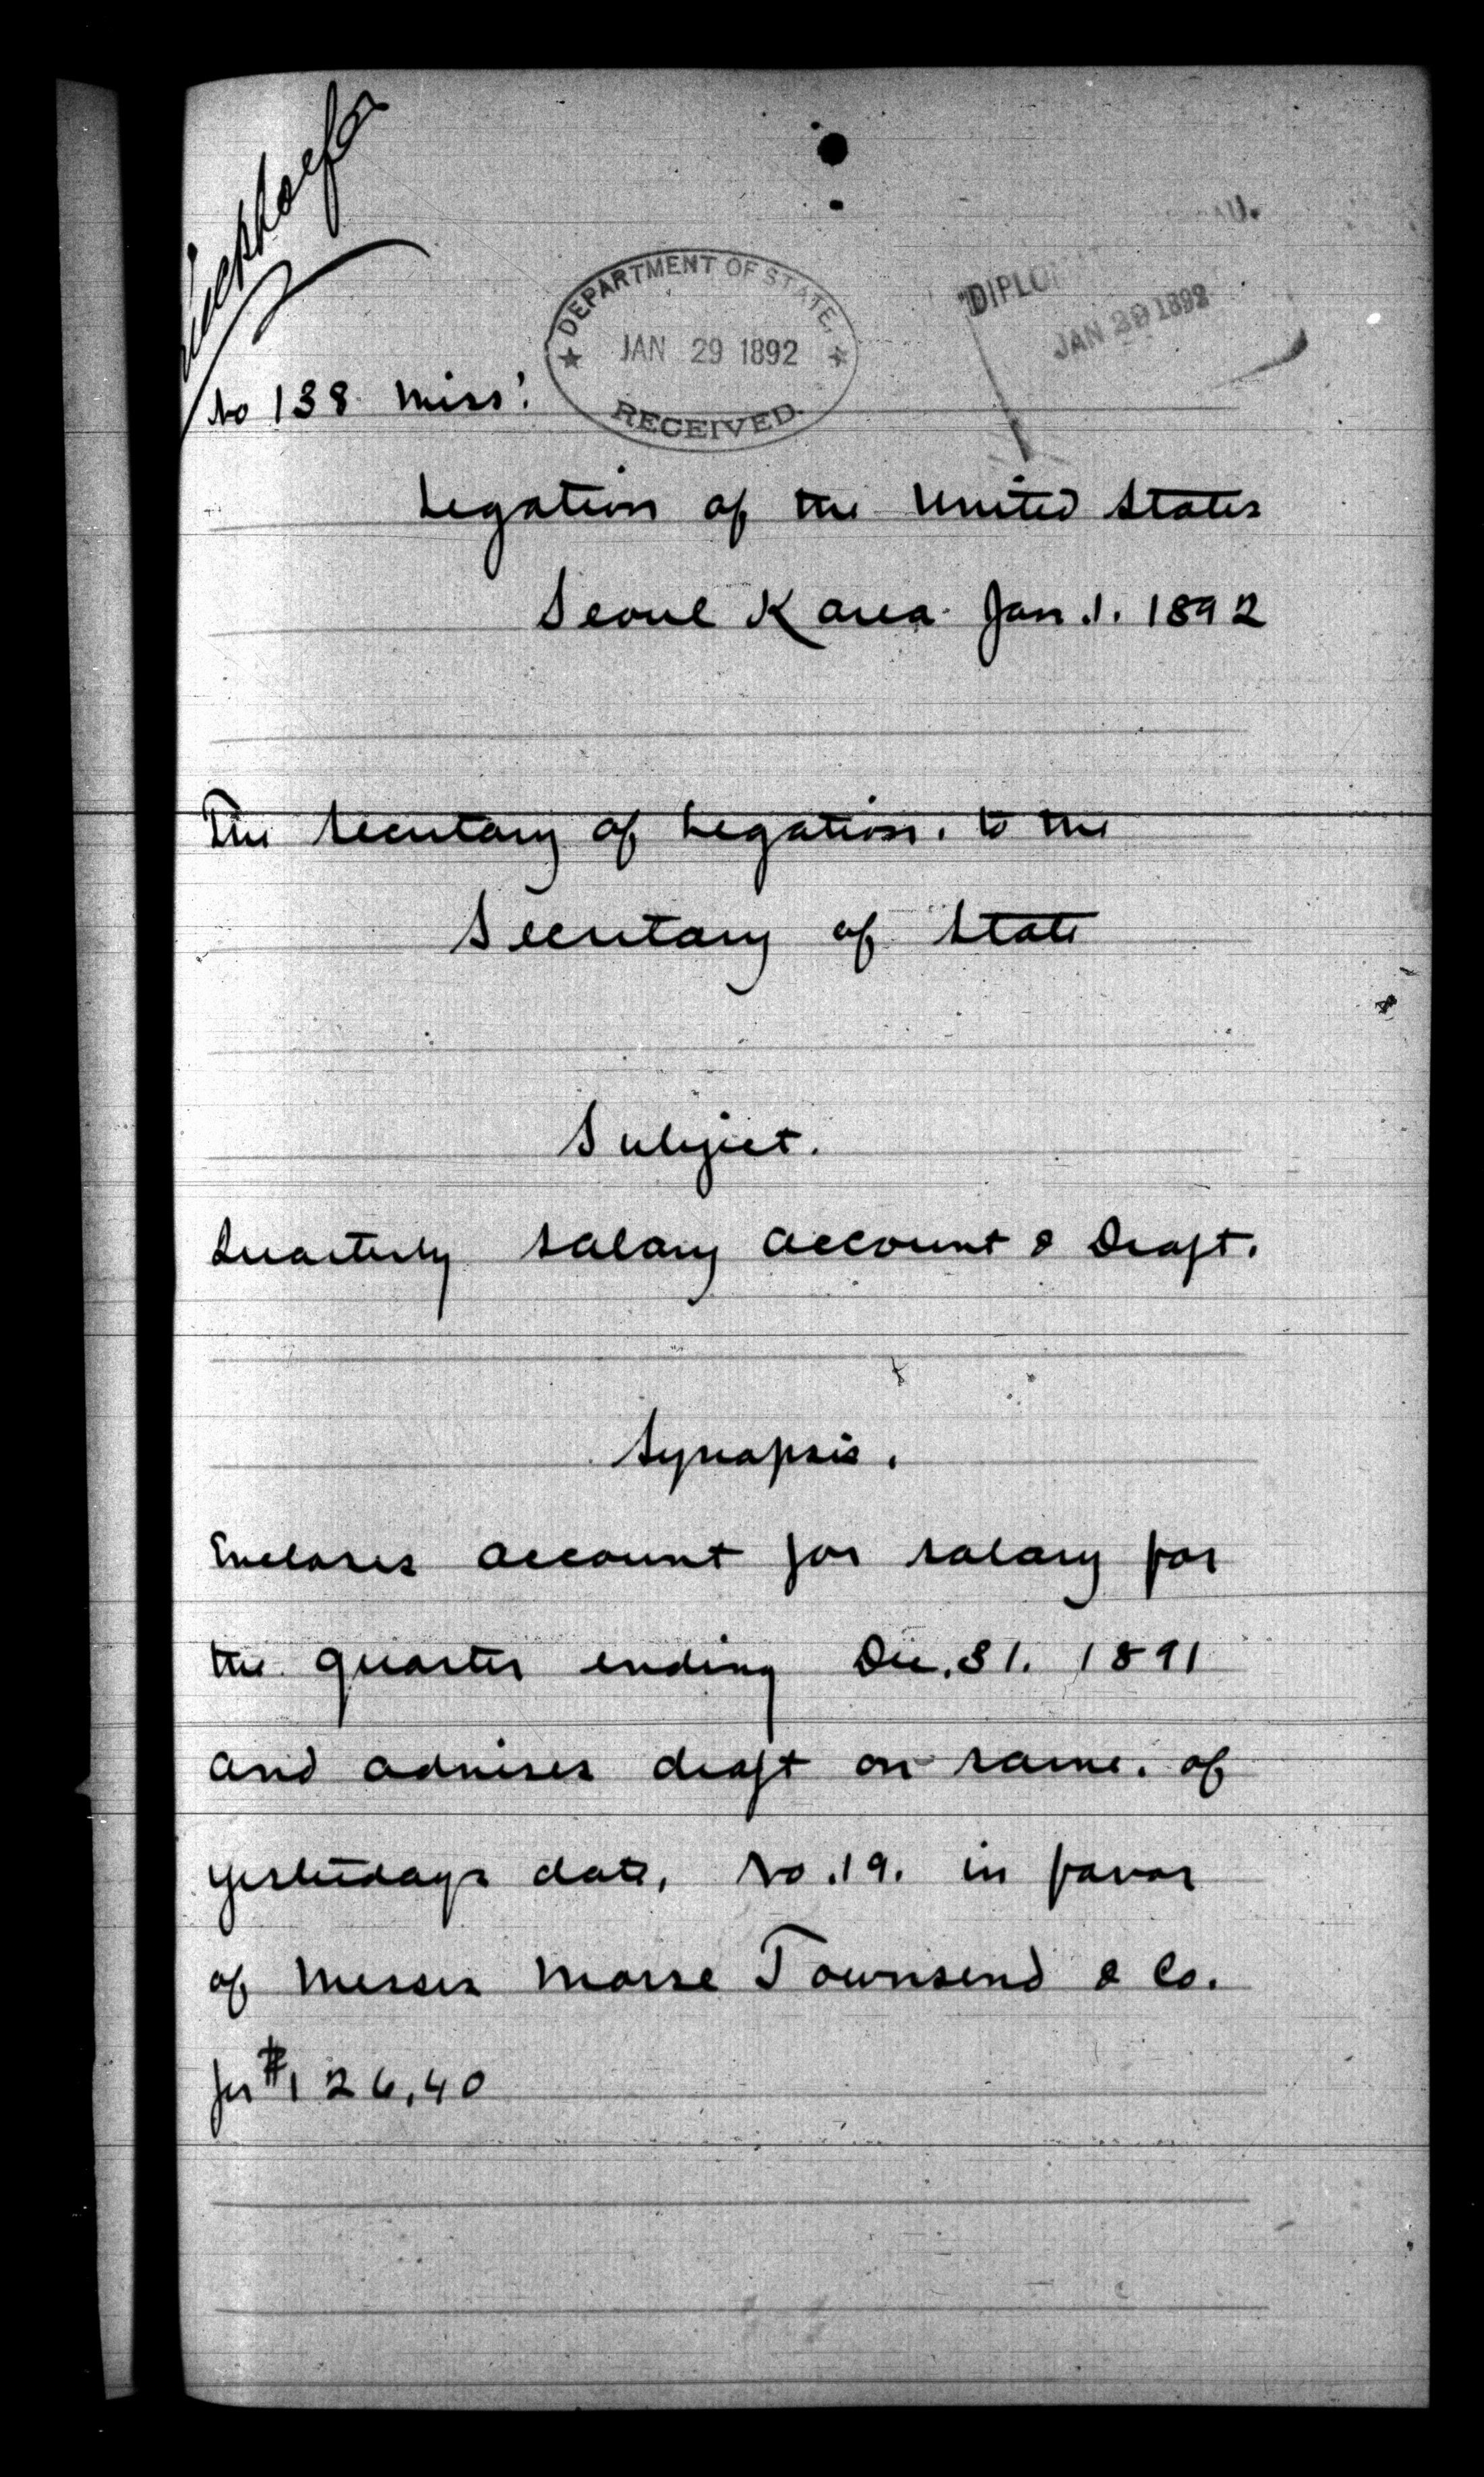 DEPARTMENT OF STATE,
JAN 29 1892
RECEIVED.
DIPLO
JAN 29 1892
No 138 Miss:
Legation of the United States
Seoul Korea Jan. 1. 1892
The Secretary of Legation. to the
Secretary of State
Subject.
Quarterly salary account & Draft.
Synopsis.
Encloses account for salary for
the quarter ending Dec. 31. 1891
and advises draft on same. of
yesterdays date, No. 19. in favor
of Messrs Morse Townsend & Co.
for $126.40